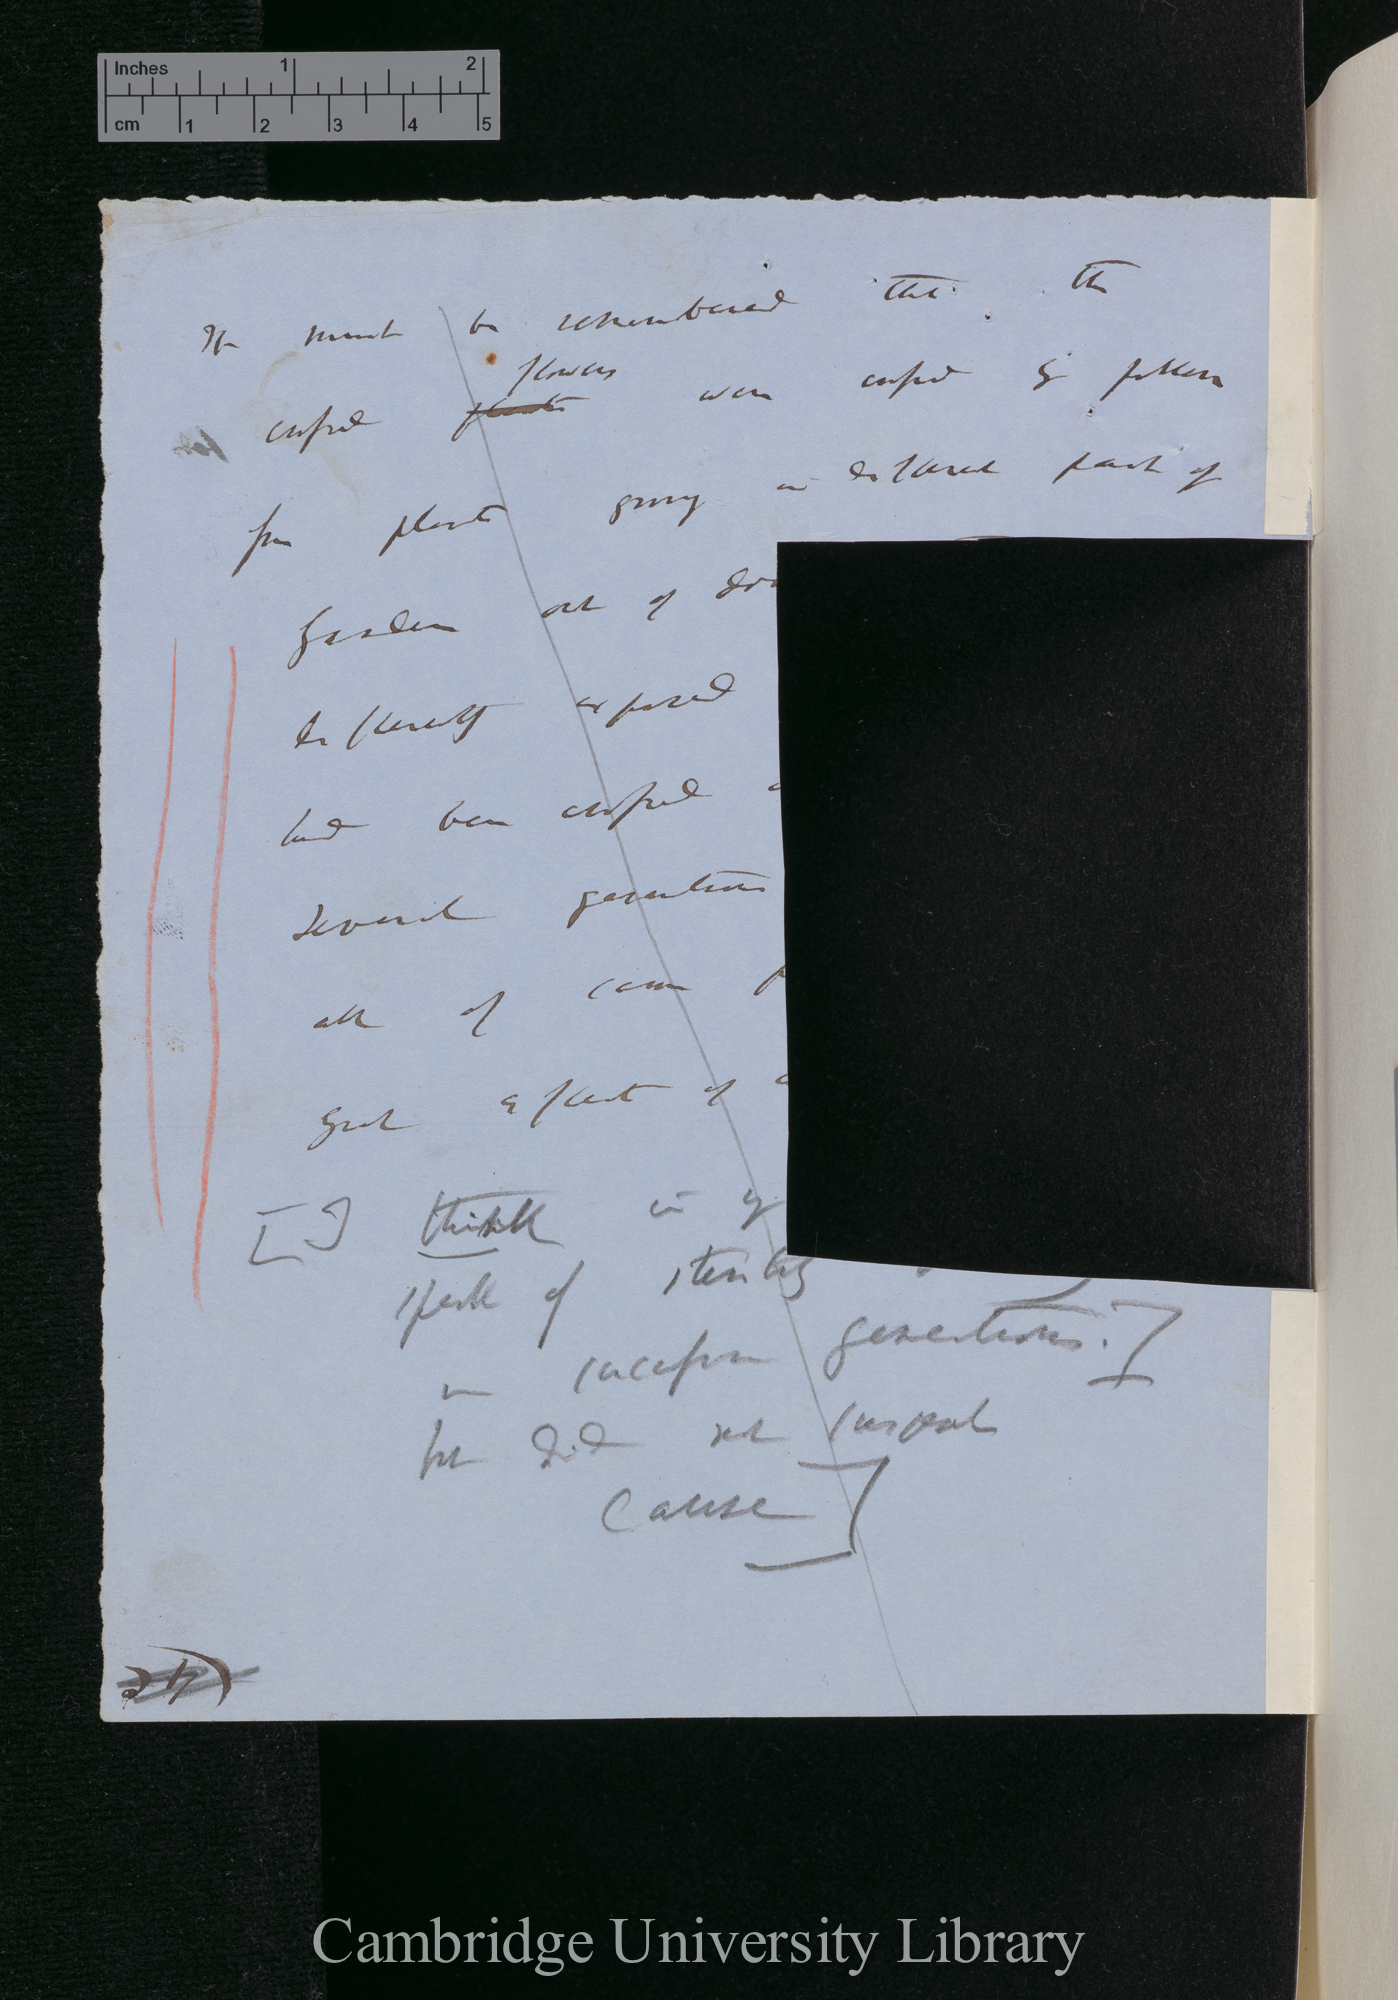 Inches 1 2
cm 1 2 3 4 5
It must be remembered that the
flowers
crossed plants were crossed by pollen
from plants growing in different parts of
Garden out of
differently exposed
had been crossed
several generations
all of same
great effect of
[ ] think in
speak of sterility
in successive generations.]
but did not suspect
cause]
Cambridge University Library